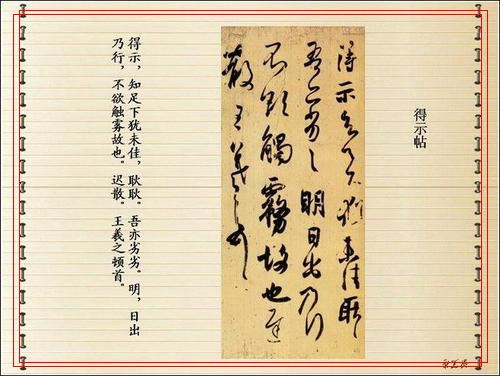 得示帖
得示知足下猶未佳耿々
吾亦劣々明日出乃行
不欲觸霧故也遲
散王羲之頓首
得示，知足下犹未佳，耿耿。吾亦劣劣。明，日出
乃行，不欲触雾故也。迟散。王羲之顿首。